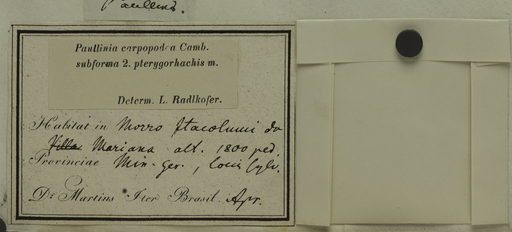 Paullinia.
Paullinia carpopodea Camb.
subforma 2. pterygorhachis m.
Determ. L. Radlkofer.
Habitat in Morro Itacolumi da
Villa Mariana alt. 1800 ped.
Provinciae Min. ger., locis sylv.
Dr Martius Iter Brasil. Apr.